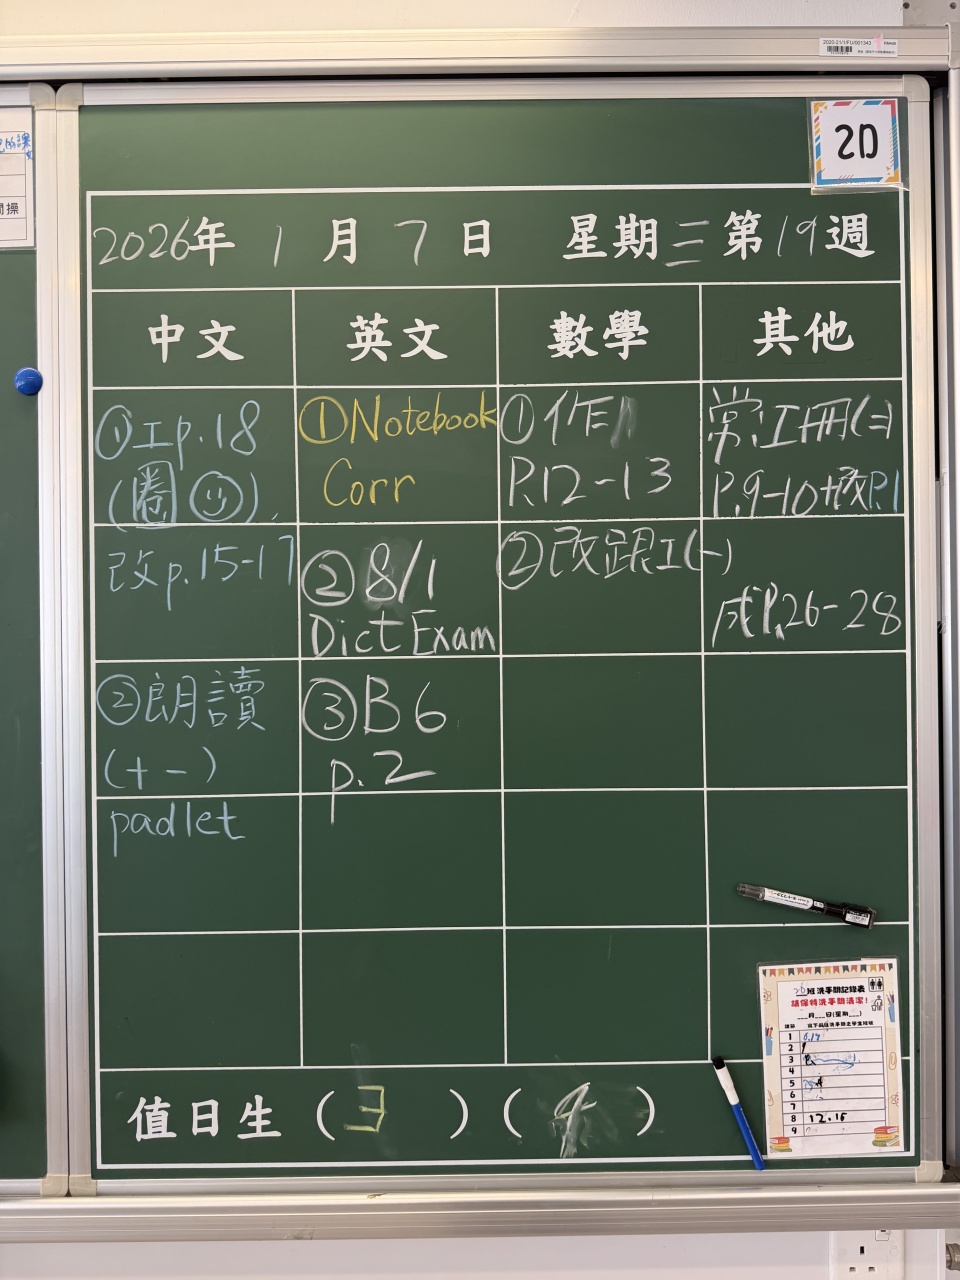 2020-21/1/FU/001343
2D
2026年 1 月 7 日 星期三第19週
中文 英文 數學 其他
①工p.18
(圈 ).
改p.15-17
②朗讀
(+-)
padlet
①Notebook
Corr
②8/1
Dict Exam
③B6
p.2
①作
P.12-13
②改跟工(一)
常工冊(二)
P.9-10+改P.1
成P.26-28
班洗手間記錄表
請保持洗手間清潔！
___月___日(星期___)
1
2
3
4
5
6
7
8 12.15
9
值日生 (3) (4)
間操